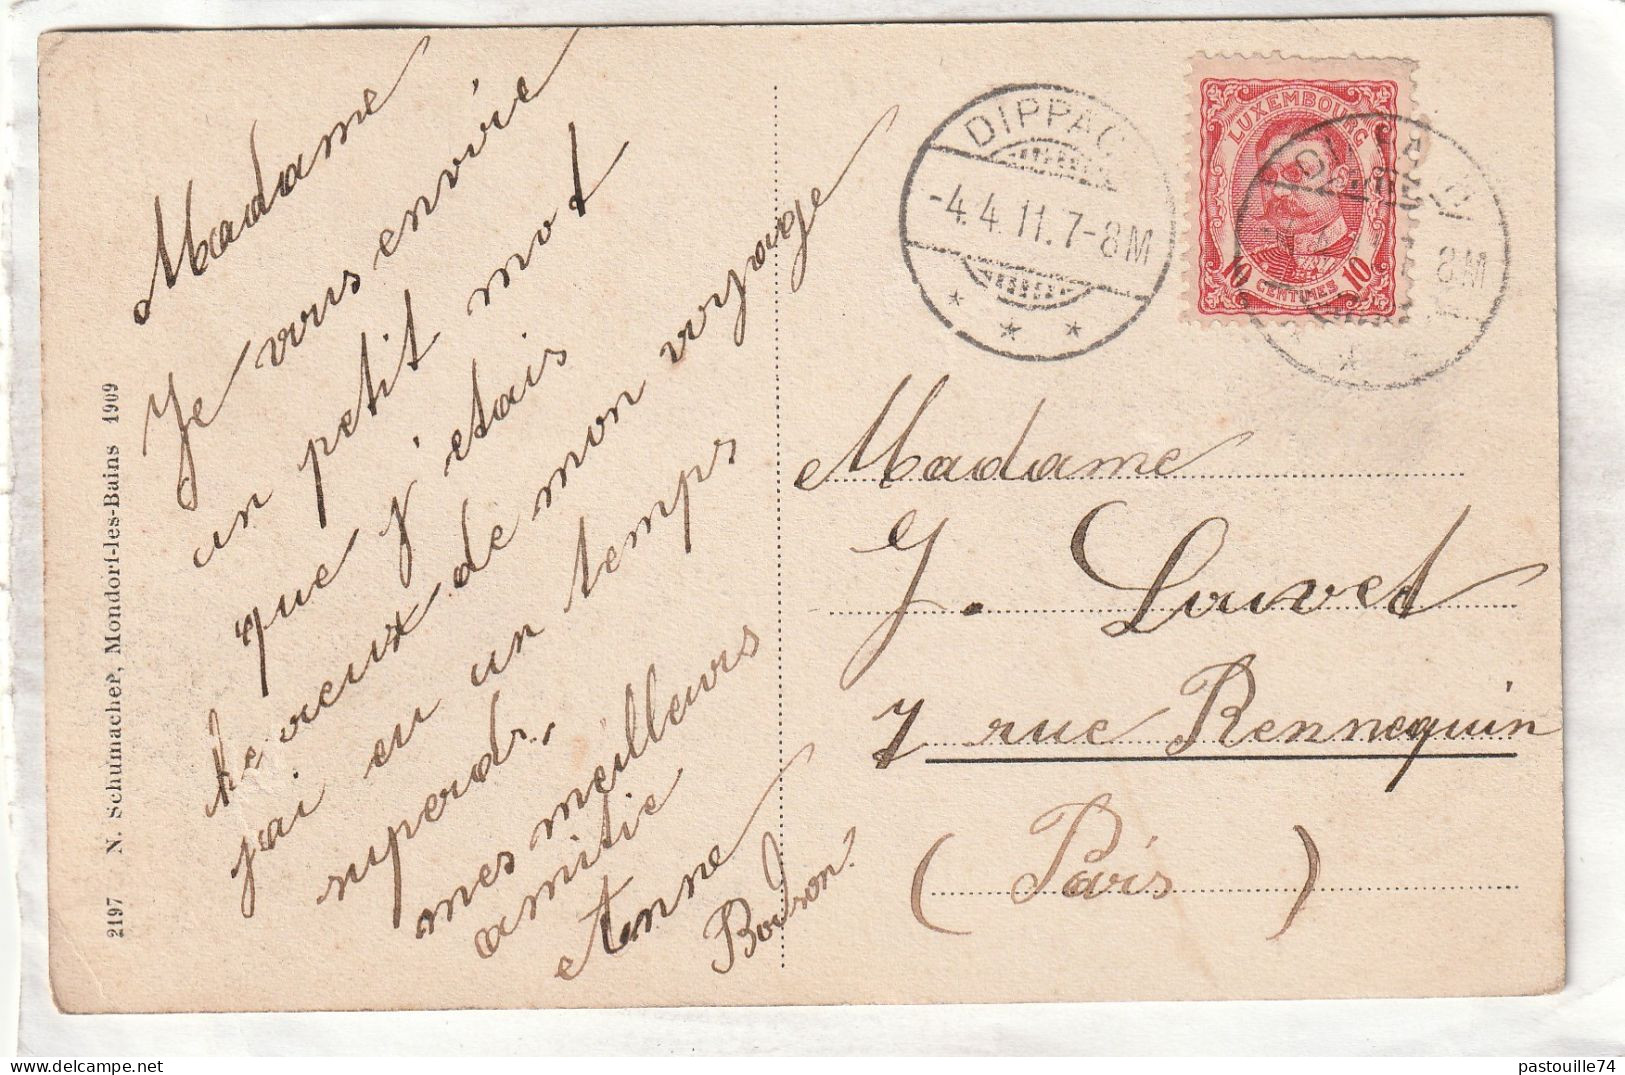 Madame
Je vous envoie
un petit mot
que j'étais
heureux de mon voyage
j'ai eu un temps
superds,
mes meilleurs
amitie
Anne
Bodson
2197 N. Schumacher, Mondorf-les-Bains 1909
DIPPAC
-4.4.11.7-8M
LUXEMBOURG
10 CENTIMES 10
8M
Madame
J. Louvet
7 rue Rennequin
(Paris)
pastouille74